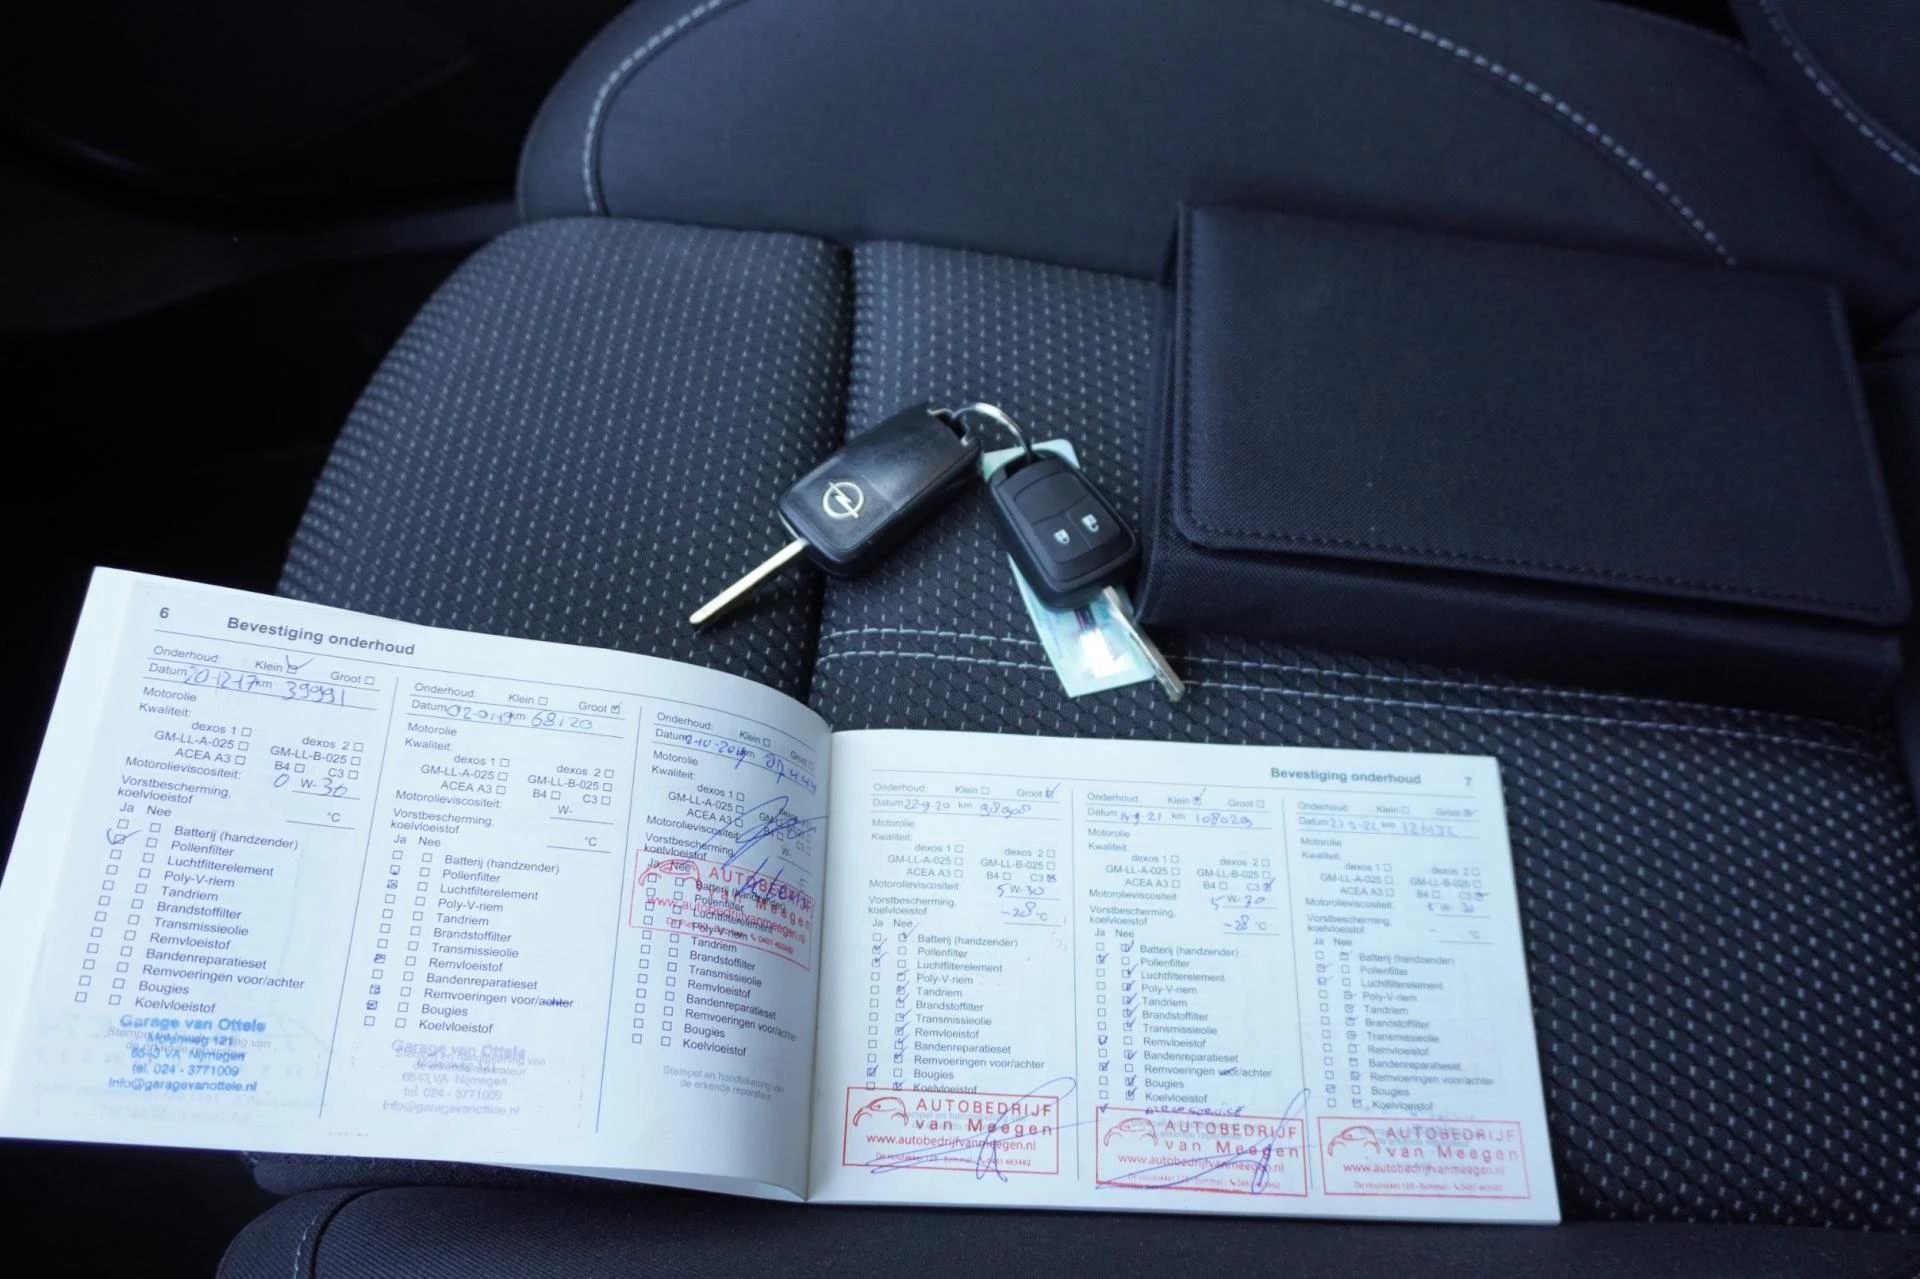 6 Bevestiging onderhoud
Onderhoud: Klein Groot
Datum 20-12-17 km 39991
Motorolie
Kwaliteit:
dexos 1 dexos 2
GM-LL-A-025 GM-LL-B-025
ACEA A3 B4 C3
Motorolieviscositeit: 0 W- 30
Vorstbescherming,
koelvloeistof °C
Ja Nee
Batterij (handzender)
Pollenfilter
Luchtfilterelement
Poly-V-riem
Tandriem
Brandstoffilter
Transmissieolie
Remvloeistof
Bandenreparatieset
Remvoeringen voor/achter
Bougies
Koelvloeistof
Garage van Ottele
Molenweg 121
6543 VA Nijmegen
tel. 024 - 3771009
Info@garagevanottele.nl
Onderhoud: Klein Groot
Datum km 68120
Motorolie
Kwaliteit:
dexos 1 dexos 2
GM-LL-A-025 GM-LL-B-025
ACEA A3 B4 C3
Motorolieviscositeit: W-
Vorstbescherming,
koelvloeistof °C
Ja Nee
Batterij (handzender)
Pollenfilter
Luchtfilterelement
Poly-V-riem
Tandriem
Brandstoffilter
Transmissieolie
Remvloeistof
Bandenreparatieset
Remvoeringen voor/achter
Bougies
Koelvloeistof
Garage van Ottele
Stempel en handtekening van
de erkende reparateur
6543 VA Nijmegen
tel. 024 - 3771009
Info@garagevanottele.nl
Onderhoud: Klein Groot
Datum km
Motorolie
Kwaliteit:
dexos 1
GM-LL-A-025
ACEA A3 B4 C3
Motorolieviscositeit: W-
Vorstbescherming,
koelvloeistof
Ja Nee
AUTOBEDRIJF
van Meegen
www.autobedrijfvanmeegen.nl
0481 463482
Batterij (handzender)
Pollenfilter
Luchtfilterelement
Poly-V-riem
Tandriem
Brandstoffilter
Transmissieolie
Remvloeistof
Bandenreparatieset
Remvoeringen voor/achter
Bougies
Koelvloeistof
Stempel en handtekening van
de erkende reparateur
Bevestiging onderhoud 7
Onderhoud: Klein Groot
Datum 22-9-20 km
Motorolie
Kwaliteit:
dexos 1 dexos 2
GM-LL-A-025 GM-LL-B-025
ACEA A3 B4 C3
Motorolieviscositeit: 5 W- 30
Vorstbescherming,
koelvloeistof -28 °C
Ja Nee
Batterij (handzender)
Pollenfilter
Luchtfilterelement
Poly-V-riem
Tandriem
Brandstoffilter
Transmissieolie
Remvloeistof
Bandenreparatieset
Remvoeringen voor/achter
Bougies
Koelvloeistof
AUTOBEDRIJF
van Meegen
www.autobedrijfvanmeegen.nl
De Houtakker 12B - Bemmel - 0481 463482
Onderhoud: Klein Groot
Datum 14-9-21 km 108029
Motorolie
Kwaliteit:
dexos 1 dexos 2
GM-LL-A-025 GM-LL-B-025
ACEA A3 B4 C3
Motorolieviscositeit: 5 W- 30
Vorstbescherming,
koelvloeistof -28 °C
Ja Nee
Batterij (handzender)
Pollenfilter
Luchtfilterelement
Poly-V-riem
Tandriem
Brandstoffilter
Transmissieolie
Remvloeistof
Bandenreparatieset
Remvoeringen voor/achter
Bougies
Koelvloeistof
AUTOBEDRIJF
van Meegen
www.autobedrijfvanmeegen.nl
De Houtakker 12B - Bemmel - 0481 463482
Onderhoud: Klein Groot
Datum km
Motorolie
Kwaliteit:
dexos 1 dexos 2
GM-LL-A-025 GM-LL-B-025
ACEA A3 B4 C3
Motorolieviscositeit: 5 W- 30
Vorstbescherming,
koelvloeistof °C
Ja Nee
Batterij (handzender)
Pollenfilter
Luchtfilterelement
Poly-V-riem
Tandriem
Brandstoffilter
Transmissieolie
Remvloeistof
Bandenreparatieset
Remvoeringen voor/achter
Bougies
Koelvloeistof
AUTOBEDRIJF
van Meegen
www.autobedrijfvanmeegen.nl
De Houtakker 12B - Bemmel - 0481 463482